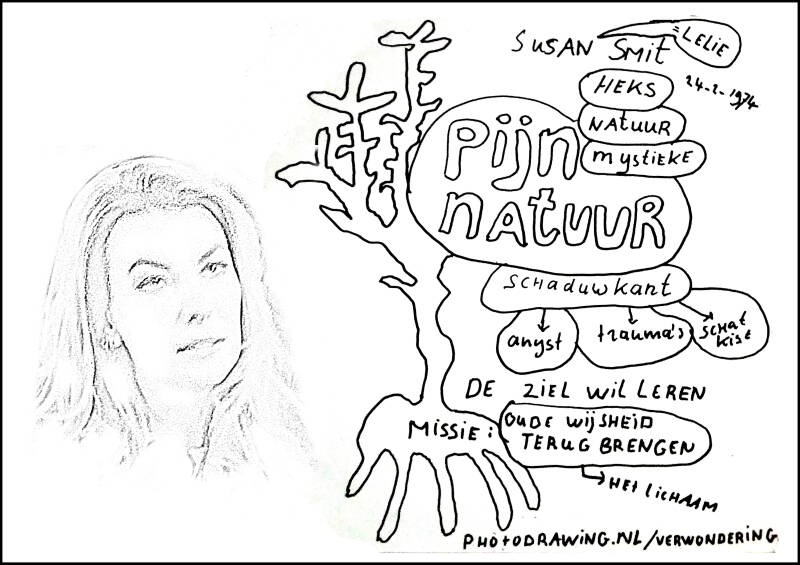 SUSAN SMIT
LELIE
24-2-1974
HEKS
NATUUR
MYSTIEKE
PIJN
NATUUR
SCHADUWKANT
angst
trauma's
SCHAT
KIST
DE ZIEL WIL LEREN
MISSIE:
OUDE WIJSHEID
TERUG BRENGEN
HET LICHAAM
PHOTODRAWING.NL/VERWONDERING